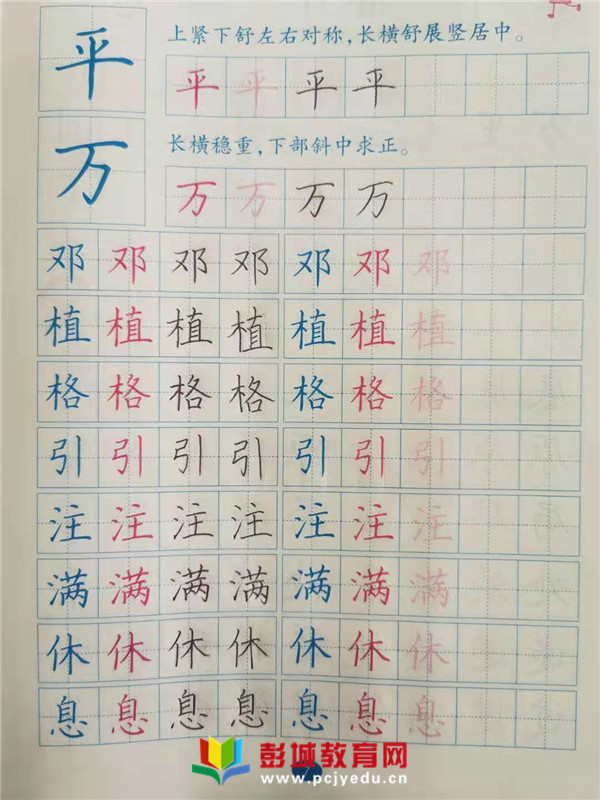 平 上紧下舒左右对称，长横舒展竖居中。
平 平 平 平
万 长横稳重，下部斜中求正。
万 万 万 万
邓 邓 邓 邓 邓 邓 邓
植 植 植 植 植 植 植
格 格 格 格 格 格 格
引 引 引 引 引 引 引
注 注 注 注 注 注 注
满 满 满 满 满 满 满
休 休 休 休 休 休 休
息 息 息 息 息 息 息
彭城教育网
www.pcjyedu.cn